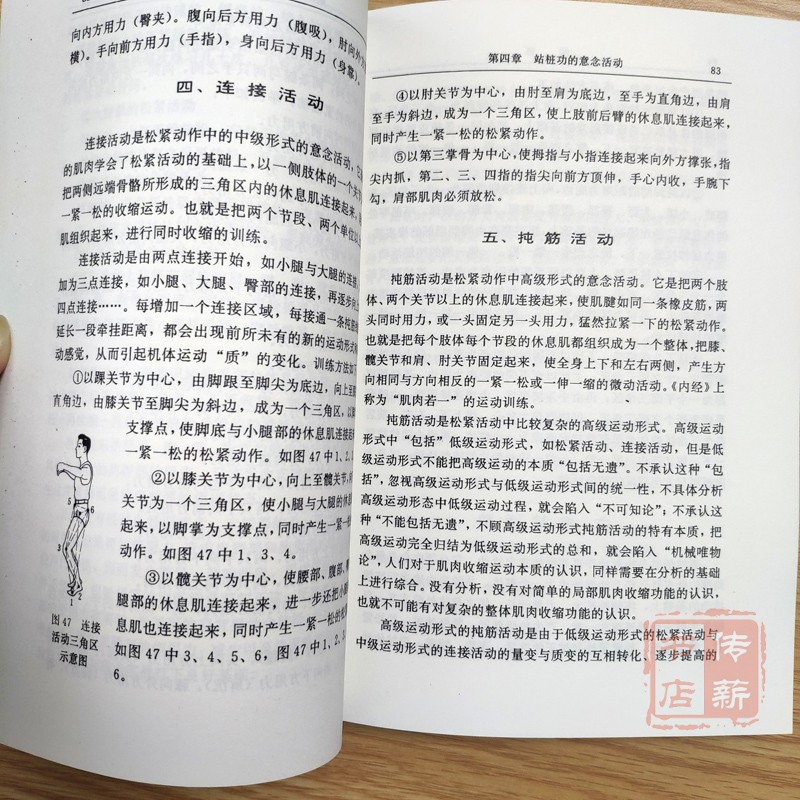 向内方用力（臀夹）。腹向后方用力（腹吸），肘向外
横）。手向前方用力（手指），身向后方用力（身靠）。
四、连接活动
连接活动是松紧动作中的中级形式的意念活动，
的肌肉学会了松紧活动的基础上，以一侧肢体的一个关
把两侧远端骨骼所形成的三角区内的休息肌连接起来，
一紧一松的收缩运动。也就是把两个节段、两个单位以
肌组织起来，进行同时收缩的训练。
连接活动是由两点连接开始，如小腿与大腿的连接，
加为三点连接，如小腿、大腿、臀部的连接，再逐步
四点连接……。每增加一个连接区域，每接通一条
延长一段牵挂距离，都会出现前所未有的新的运动形式
动感觉，从而引起机体运动“质”的变化。训练方法如
①以踝关节为中心，由脚跟至脚尖为底边，向上至
直角边，由膝关节至脚尖为斜边，成为一个三角区，以
支撑点，使脚底与小腿部的休息肌连接起
一紧一松的松紧动作。如图47中1、3。
②以膝关节为中心，向上至髋关节，向
关节为一个三角区，使小腿与大腿的休
起来，以脚掌为支撑点，同时产生一紧一
动作。如图47中1、3、4。
③以髋关节为中心，使腰部、腹部、
腿部的休息肌连接起来，进一步还把小
息肌也连接起来，同时产生一紧一松的
如图47中3、4、5、6，图47中1、2、3
6。
5
6
3
4
1
2
图47 连接
活动三角区
示意图
第四章 站桩功的意念活动
83
④以肘关节为中心，由肘至肩为底边，至手为直角边，由肩
至手为斜边，成为一个三角区，使上肢前后臂的休息肌连接起来，
同时产生一紧一松的松紧动作。
⑤以第三掌骨为中心，使拇指与小指连接起来向外方撑张，指
尖内抓，第二、三、四指的指尖向前方顶伸，手心内收，手腕下
勾，肩部肌肉必须放松。
五、扽筋活动
扽筋活动是松紧动作中高级形式的意念活动。它是把两个肢
体、两个关节以上的休息肌连接起来，使肌腱如同一条橡皮筋，两
头同时用力，或一头固定另一头用力，猛然拉紧一下的松紧动作。
也就是把每个肢体每个节段的休息肌都组织成为一个整体，把膝、
髋关节和肩、肘关节固定起来，使全身上下和左右两侧，产生方
向相同与方向相反的一紧一松或一伸一缩的微动活动。《内经》上
称为“肌肉若一”的运动训练。
扽筋活动是松紧活动中比较复杂的高级运动形式。高级运动
形式中“包括”低级运动形式，如松紧活动、连接活动，但是低
级运动形式不能把高级运动的本质“包括无遗”。不承认这种“包
括”，忽视高级运动形式与低级运动形式间的统一性，不具体分析
高级运动形态中低级运动过程，就会陷入“不可知论”；不承认这
种“不能包括无遗”，不顾高级运动形式扽筋活动的特有本质，把
高级运动完全归结为低级运动形式的总和，就会陷入“机械唯物
论”，人们对于肌肉收缩运动本质的认识，同样需要在分析的基础
上进行综合。没有分析，没有对简单的局部肌肉收缩功能的认识，
也就不可能有对复杂的整体肌肉收缩功能的认识。
高级运动形式的扽筋活动是由于低级运动形式的松紧活动与
中级运动形式的连接活动的量变与质变的互相转化、逐步提高的
传薪
书店